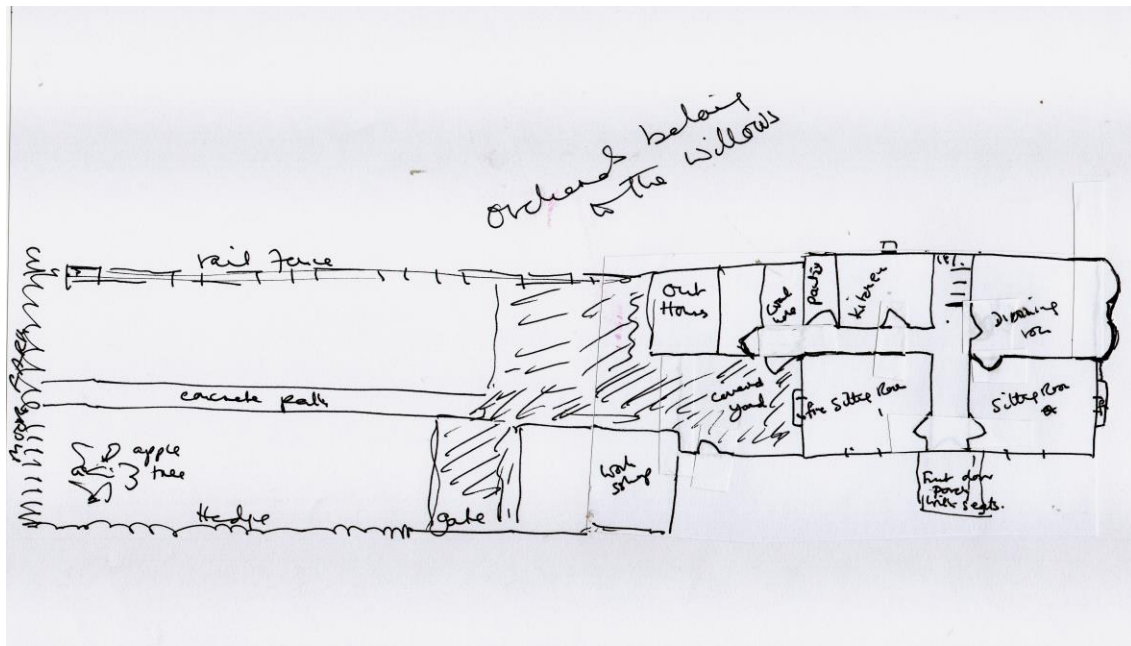 orchard belong
the willows
rail Fence
Out
House
Pantry
Kitchen
Dining
room
concrete path
covered
yard
Sitting Room
Sitting Room
apple
tree
Work
shop
Front door
porch
seats.
Hedge
gate